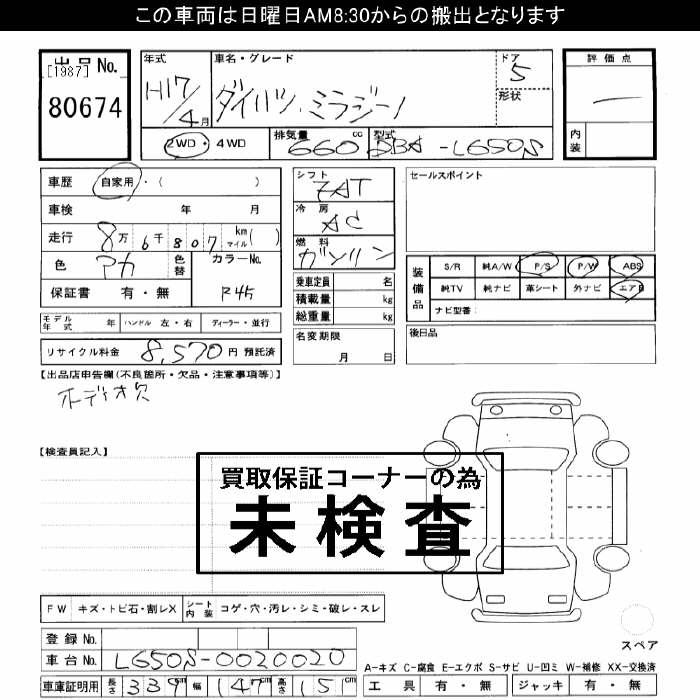 この車両は日曜日AM8:30からの搬出となります
出品No.
[1987]
80674
年式
H17/4月
車名・グレード
ダイハツ ミラジーノ
ドア
5
形状
評価点
内装
2WD・4WD
排気量
660cc
型式
DBA-L650S
車歴 自家用・( )
車検 年 月
走行 8万6千807 km マイル( )
色 アカ 色替 カラーNo.
R45
保証書 有・無
シフト
7AT
冷房
AC
燃料
ガソリン
乗車定員 名
積載量 kg
総重量 kg
セールスポイント
装備品
S/R 純A/W P/S P/W ABS
純TV 純ナビ 革シート 外ナビ エアB
ナビ型番:
モデル年式 年 ハンドル 左・右 ディーラー・並行
リサイクル料金 8,570円 預託済
名変期限
月 日
後日品
【出品店申告欄(不良箇所・欠品・注意事項等)】
オーディオ欠
【検査員記入】
買取保証コーナーの為
未検査
FW キズ・トビ石・割レX シート内装 コゲ・穴・汚レ・シミ・破レ・スレ
登録No.
車台No. L650S-0020020
車庫証明用 長さ 339cm 幅 147cm 高さ 15cm
スペア
A-キズ C-腐食 E-エクボ S-サビ U-凹ミ W-補修 XX-交換済
工具 有・無 ジャッキ 有・無